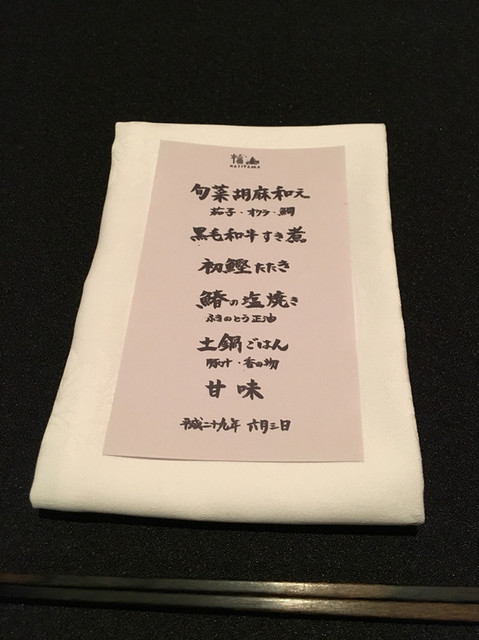 旬菜胡麻和え
茄子・オクラ・鯛
黒毛和牛すき煮
初鰹たたき
鰆の塩焼き
ふきのとう正油
土鍋ごはん
豚汁・香の物
甘味
平成二十九年 六月三日